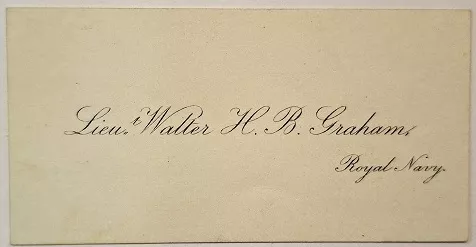 Lieu.t Walter H. B. Graham,
Royal Navy.